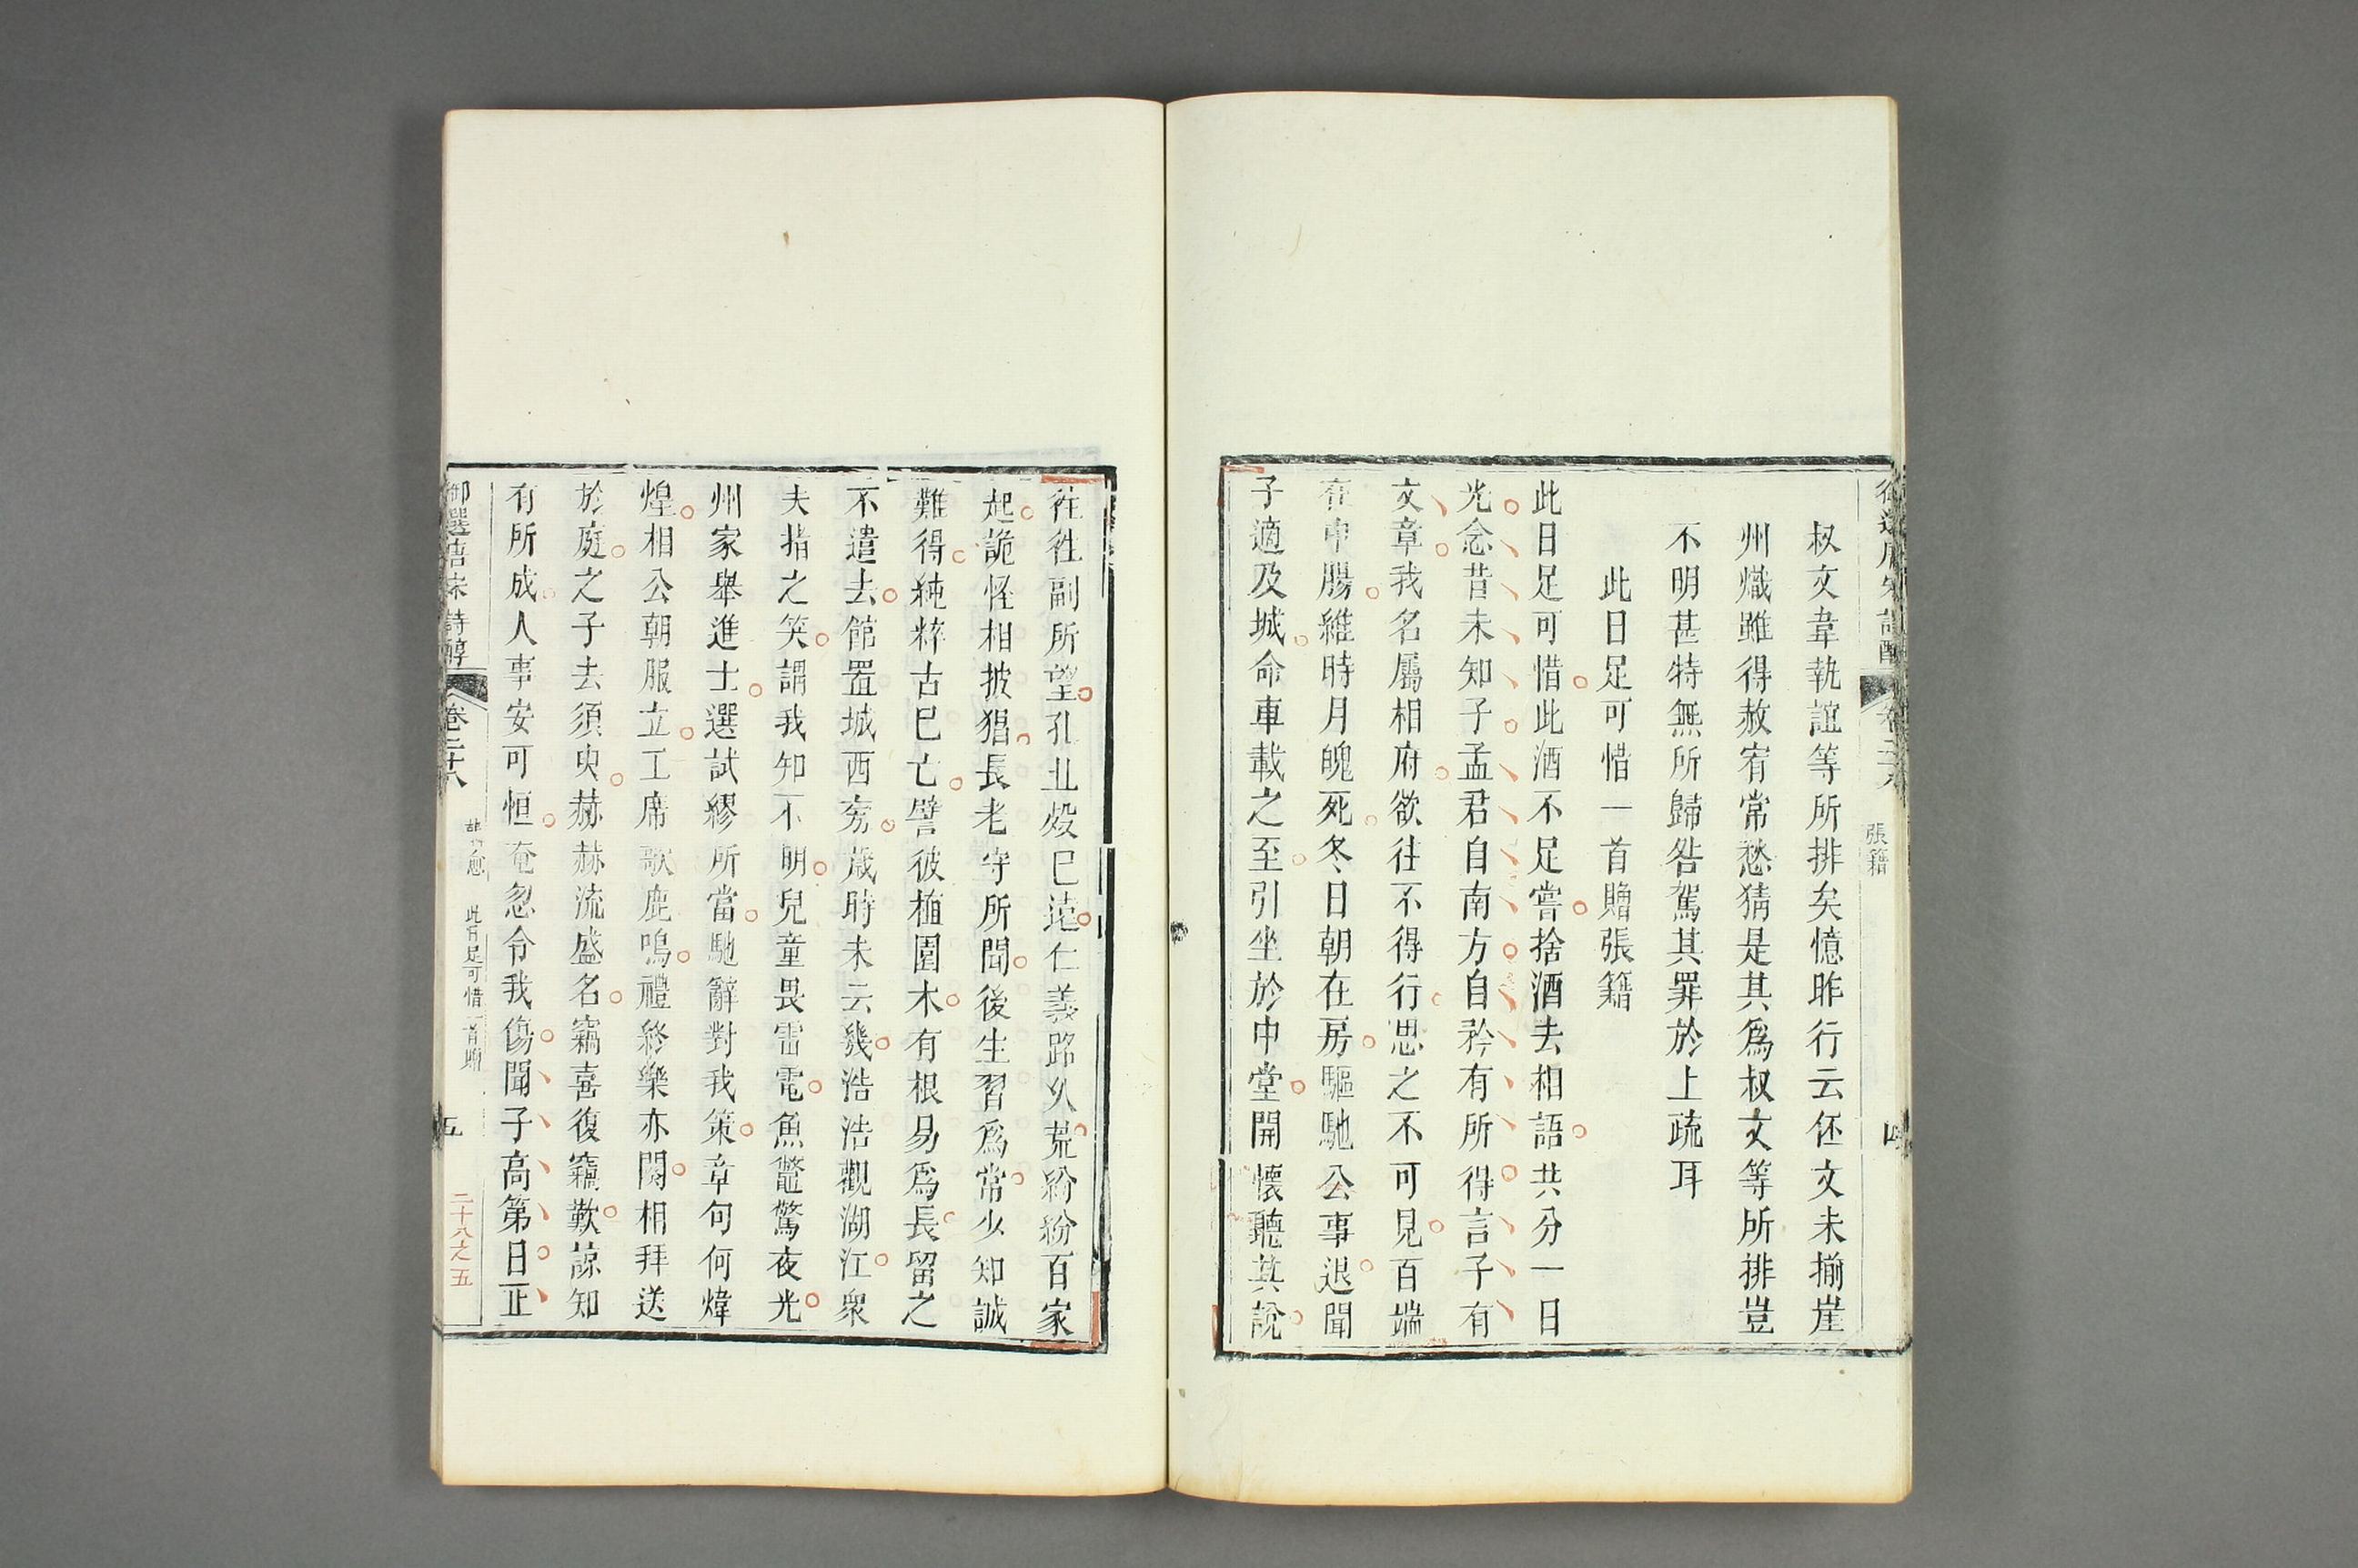 張籍
叔文韋執誼等所排矣憶昨行云伾文未揃崖
州熾雖得赦宥常愁猜是其爲叔文等所排豈
不明甚特無所歸咎駕其罪於上疏耳
此日足可惜一首贈張籍
此日足可惜此酒不足嘗捨酒去相語共分一日
光念昔未知子孟君自南方自矜有所得言子有
文章我名屬相府欲往不得行思之不可見百端
在中腸維時月魄死冬日朝在房驅馳公事退聞
子適及城命車載之至引坐於中堂開懷聽其說
往往副所望孔丘歿已遠仁義路久荒紛紛百家
起詭怪相披猖長老守所聞後生習爲常少知誠
難得純粹古已亡譬彼植園木有根易爲長留之
不遣去館置城西旁歲時未云幾浩浩觀湖江衆
夫指之笑謂我知不明兒童畏雷電魚鼈驚夜光
州家舉進士選試繆所當馳辭對我策章句何煒
煌相公朝服立工席歌鹿鳴禮終樂亦闋相拜送
於庭之子去須臾赫赫流盛名竊喜復竊歎諒知
有所成人事安可恒奄忽令我傷聞子高第日正
御選唐宋詩醇 卷二十八 韓愈 此日足可惜一首贈 五
二十八之五